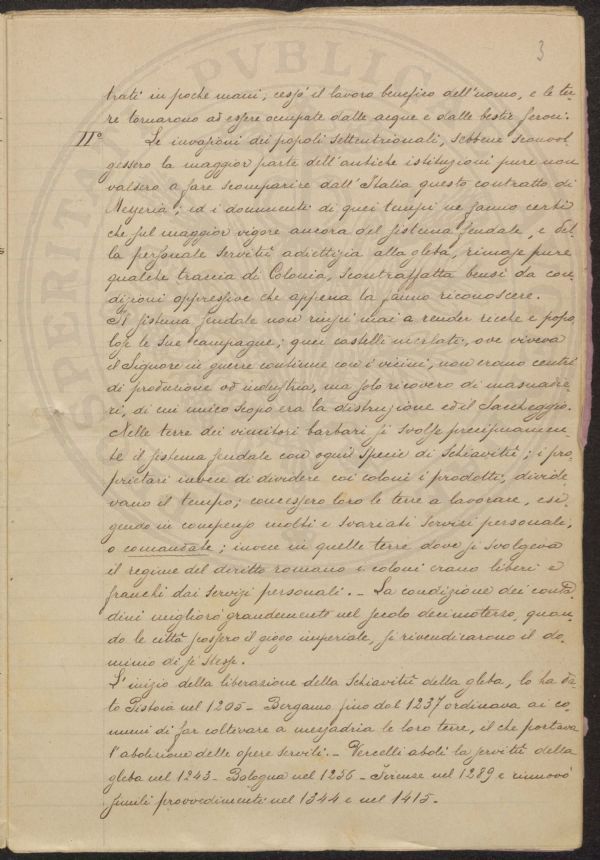 3
trati in poche mani; cessò il lavoro benefico dell'uomo, e le ter-
re tornarono ad essere occupate dalle acque e dalle bestie feroci.
IIº Le invasioni dei popoli settentrionali, sebbene sconvol-
gessero la maggior parte dell'antiche istituzioni pure non
valsero a fare scomparire dall'Italia questo contratto di
Mezzeria; ed i documenti di quei tempi ne fanno certi
che sul maggior vigore ancora del sistema feudale, e del-
la personale servitù adiettizia alla gleba, rimase pure
qualche traccia di Colonia, scontraffatta bensì da con-
dizioni oppressive che appena la fanno riconoscere.
Il sistema feudale non riuscì mai a render ricche e popo-
lose le sue campagne; quei castelli merlati, ove viveva
il Signore in guerre continue con i vicini, non erano centri
di produzione od industria, ma solo ricovero di masnadie-
ri, di cui unico scopo era la distruzione ed il Saccheggio.
Nelle terre dei vincitori barbari si svolse precipuamen-
te il sistema feudale con ogni specie di Schiavitù; i pro-
prietari invece di dividere coi coloni i prodotti, divide-
vano il tempo; concessero loro le terre a lavorare, esi-
gendo in compenso molti e svariati servizi personali,
o comandate; invece in quelle terre dove si svolgeva
il regime del diritto romano i coloni erano liberi e
franchi dai servizi personali. - La condizione dei conta-
dini migliorò grandemente nel secolo decimoterzo, quan-
do le città scossero il giogo imperiale, si rivendicarono il do-
minio di sè stesse.
L'inizio della liberazione della Schiavitù della gleba, lo ha da-
to Pistoia nel 1205 - Bergamo fino dal 1237 ordinava ai co-
muni di far coltivare a mezzadria le loro terre, il che portava
l'abolizione delle opere servili. - Vercelli abolì la servitù della
gleba nel 1243 - Bologna nel 1256 - Firenze nel 1289 e rinnovò
simili provvedimenti nel 1344 e nel 1415.